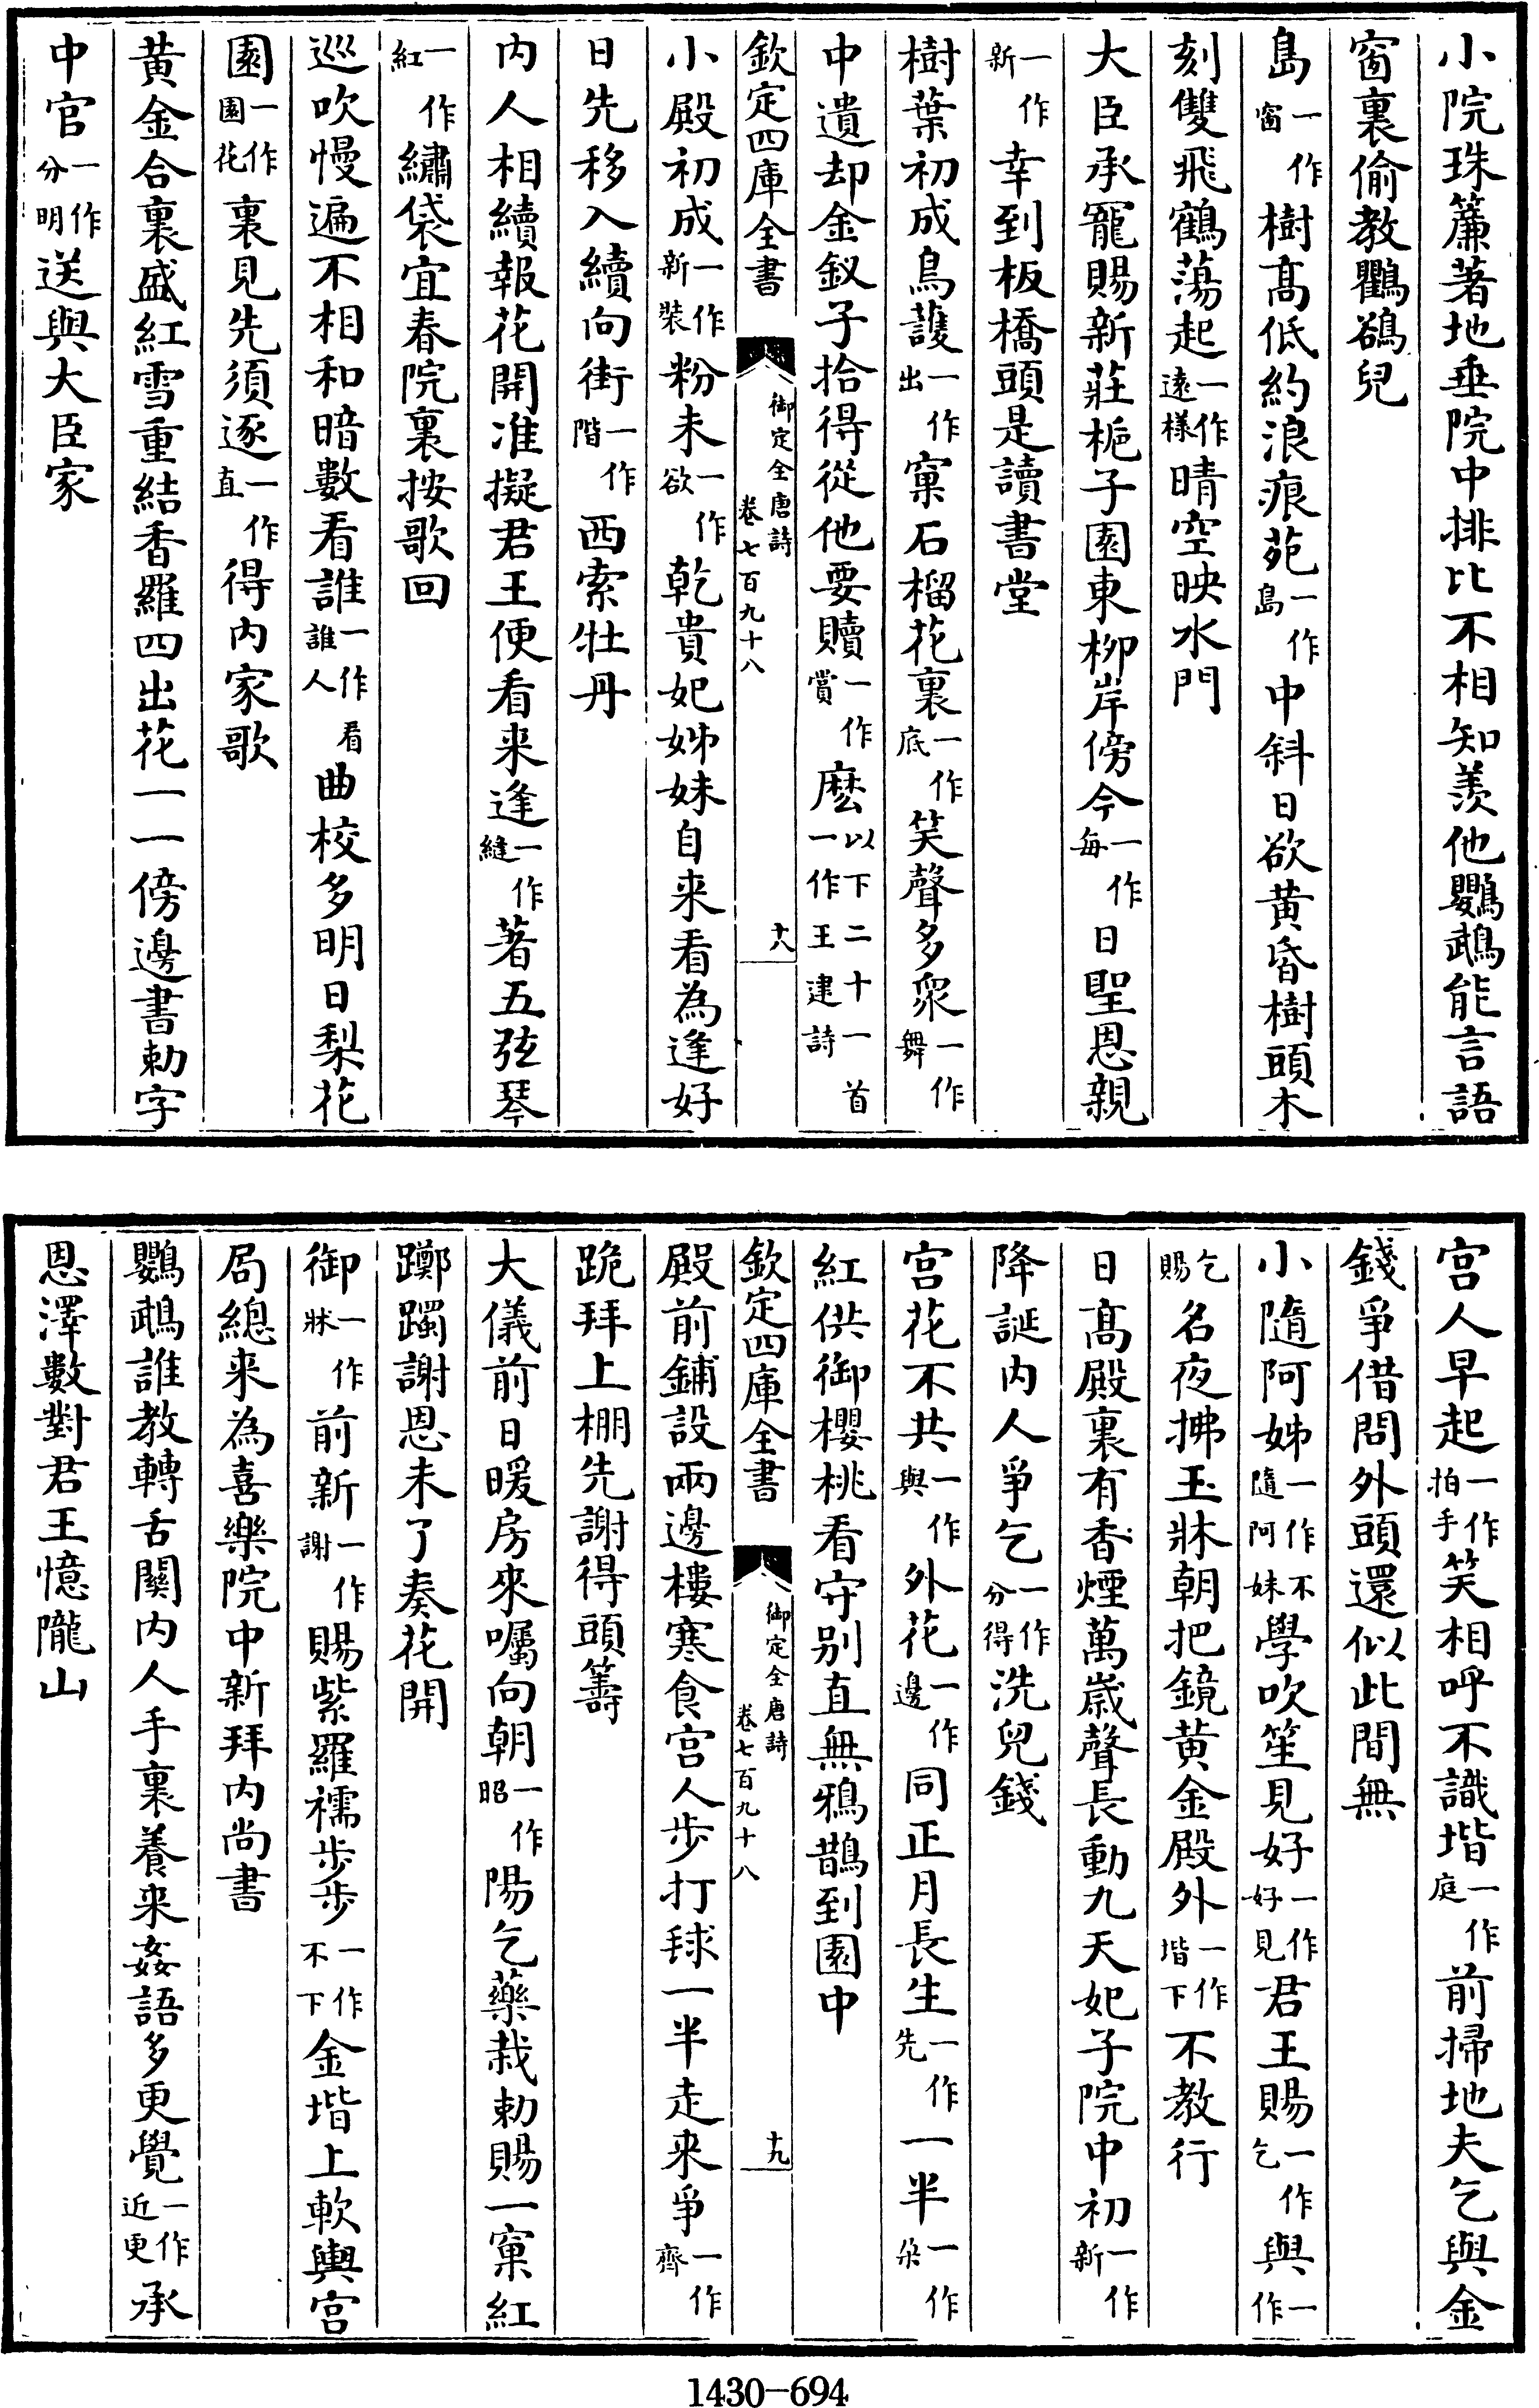 小院珠簾著地垂院中排比不相知羡他鸚鵡能言語
窗裏偷教鸜鵒兒
島一作窗樹髙低約浪痕苑一作島中斜日欲黄昏樹頭木
刻雙飛鶴蕩起一作遠様晴空映水門
大臣承寵賜新莊梔子園東柳岸傍今一作每日聖恩親
一作新幸到板橋頭是讀書堂
樹葉初成鳥護一作出窠石榴花裏一作底笑聲多衆一作舞
中遺却金釵子拾得從他要贖一作賞麽以下二十一首一作王建詩
欽定四庫全書 御定全唐詩卷七百九十八 十八
小殿初成一作新裝粉未一作欲乾貴妃姊妹自来看為逢好
日先移入續向街一作階西索牡丹
内人相續報花開准擬君王便看来逢一作縫著五弦琴
一作紅繡袋宜春院裏按歌回
巡吹慢遍不相和暗數看誰一作誰人看曲校多明日梨花
園一作園花裏見先須逐一作直得内家歌
黄金合裏盛紅雪重結香羅四出花一一傍邊書勅字
中官一作分明送與大臣家
宫人早起一作拍手笑相呼不識堦一作庭前掃地夫乞與金
錢爭借問外頭還似此間無
小隨阿姊一作不隨阿妹學吹笙見好一作好見君王賜一作乞與一作
乞賜名夜拂玉牀朝把鏡黄金殿外一作堦下不教行
日髙殿裏有香煙萬歲聲長動九天妃子院中初一作新
降誕内人爭乞一作分得洗兒錢
宫花不共一作與外花一作邊同正月長生一作先一半一作朵
紅供御櫻桃看守别直無鴉鵲到園中
欽定四庫全書 御定全唐詩卷七百九十八 十九
殿前鋪設兩邊樓寒食宫人步打毬一半走来爭一作齊
跪拜上棚先謝得頭籌
大儀前日暖房來囑向朝一作昭陽乞藥栽勅賜一窠紅
躑躅謝恩未了奏花開
御一作牀前新一作謝賜紫羅襦步步一作不下金堦上軟輿宫
局總来為喜樂院中新拜内尚書
鸚鵡誰教轉舌關内人手裏養来姦語多更覺一作近更承
恩澤數對君王憶隴山
1430-694